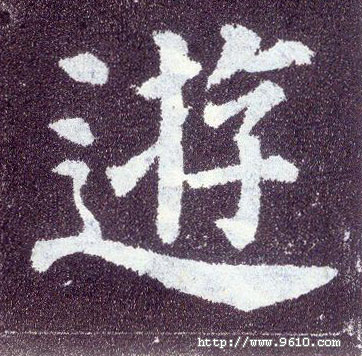 遊
http://www.9610.com